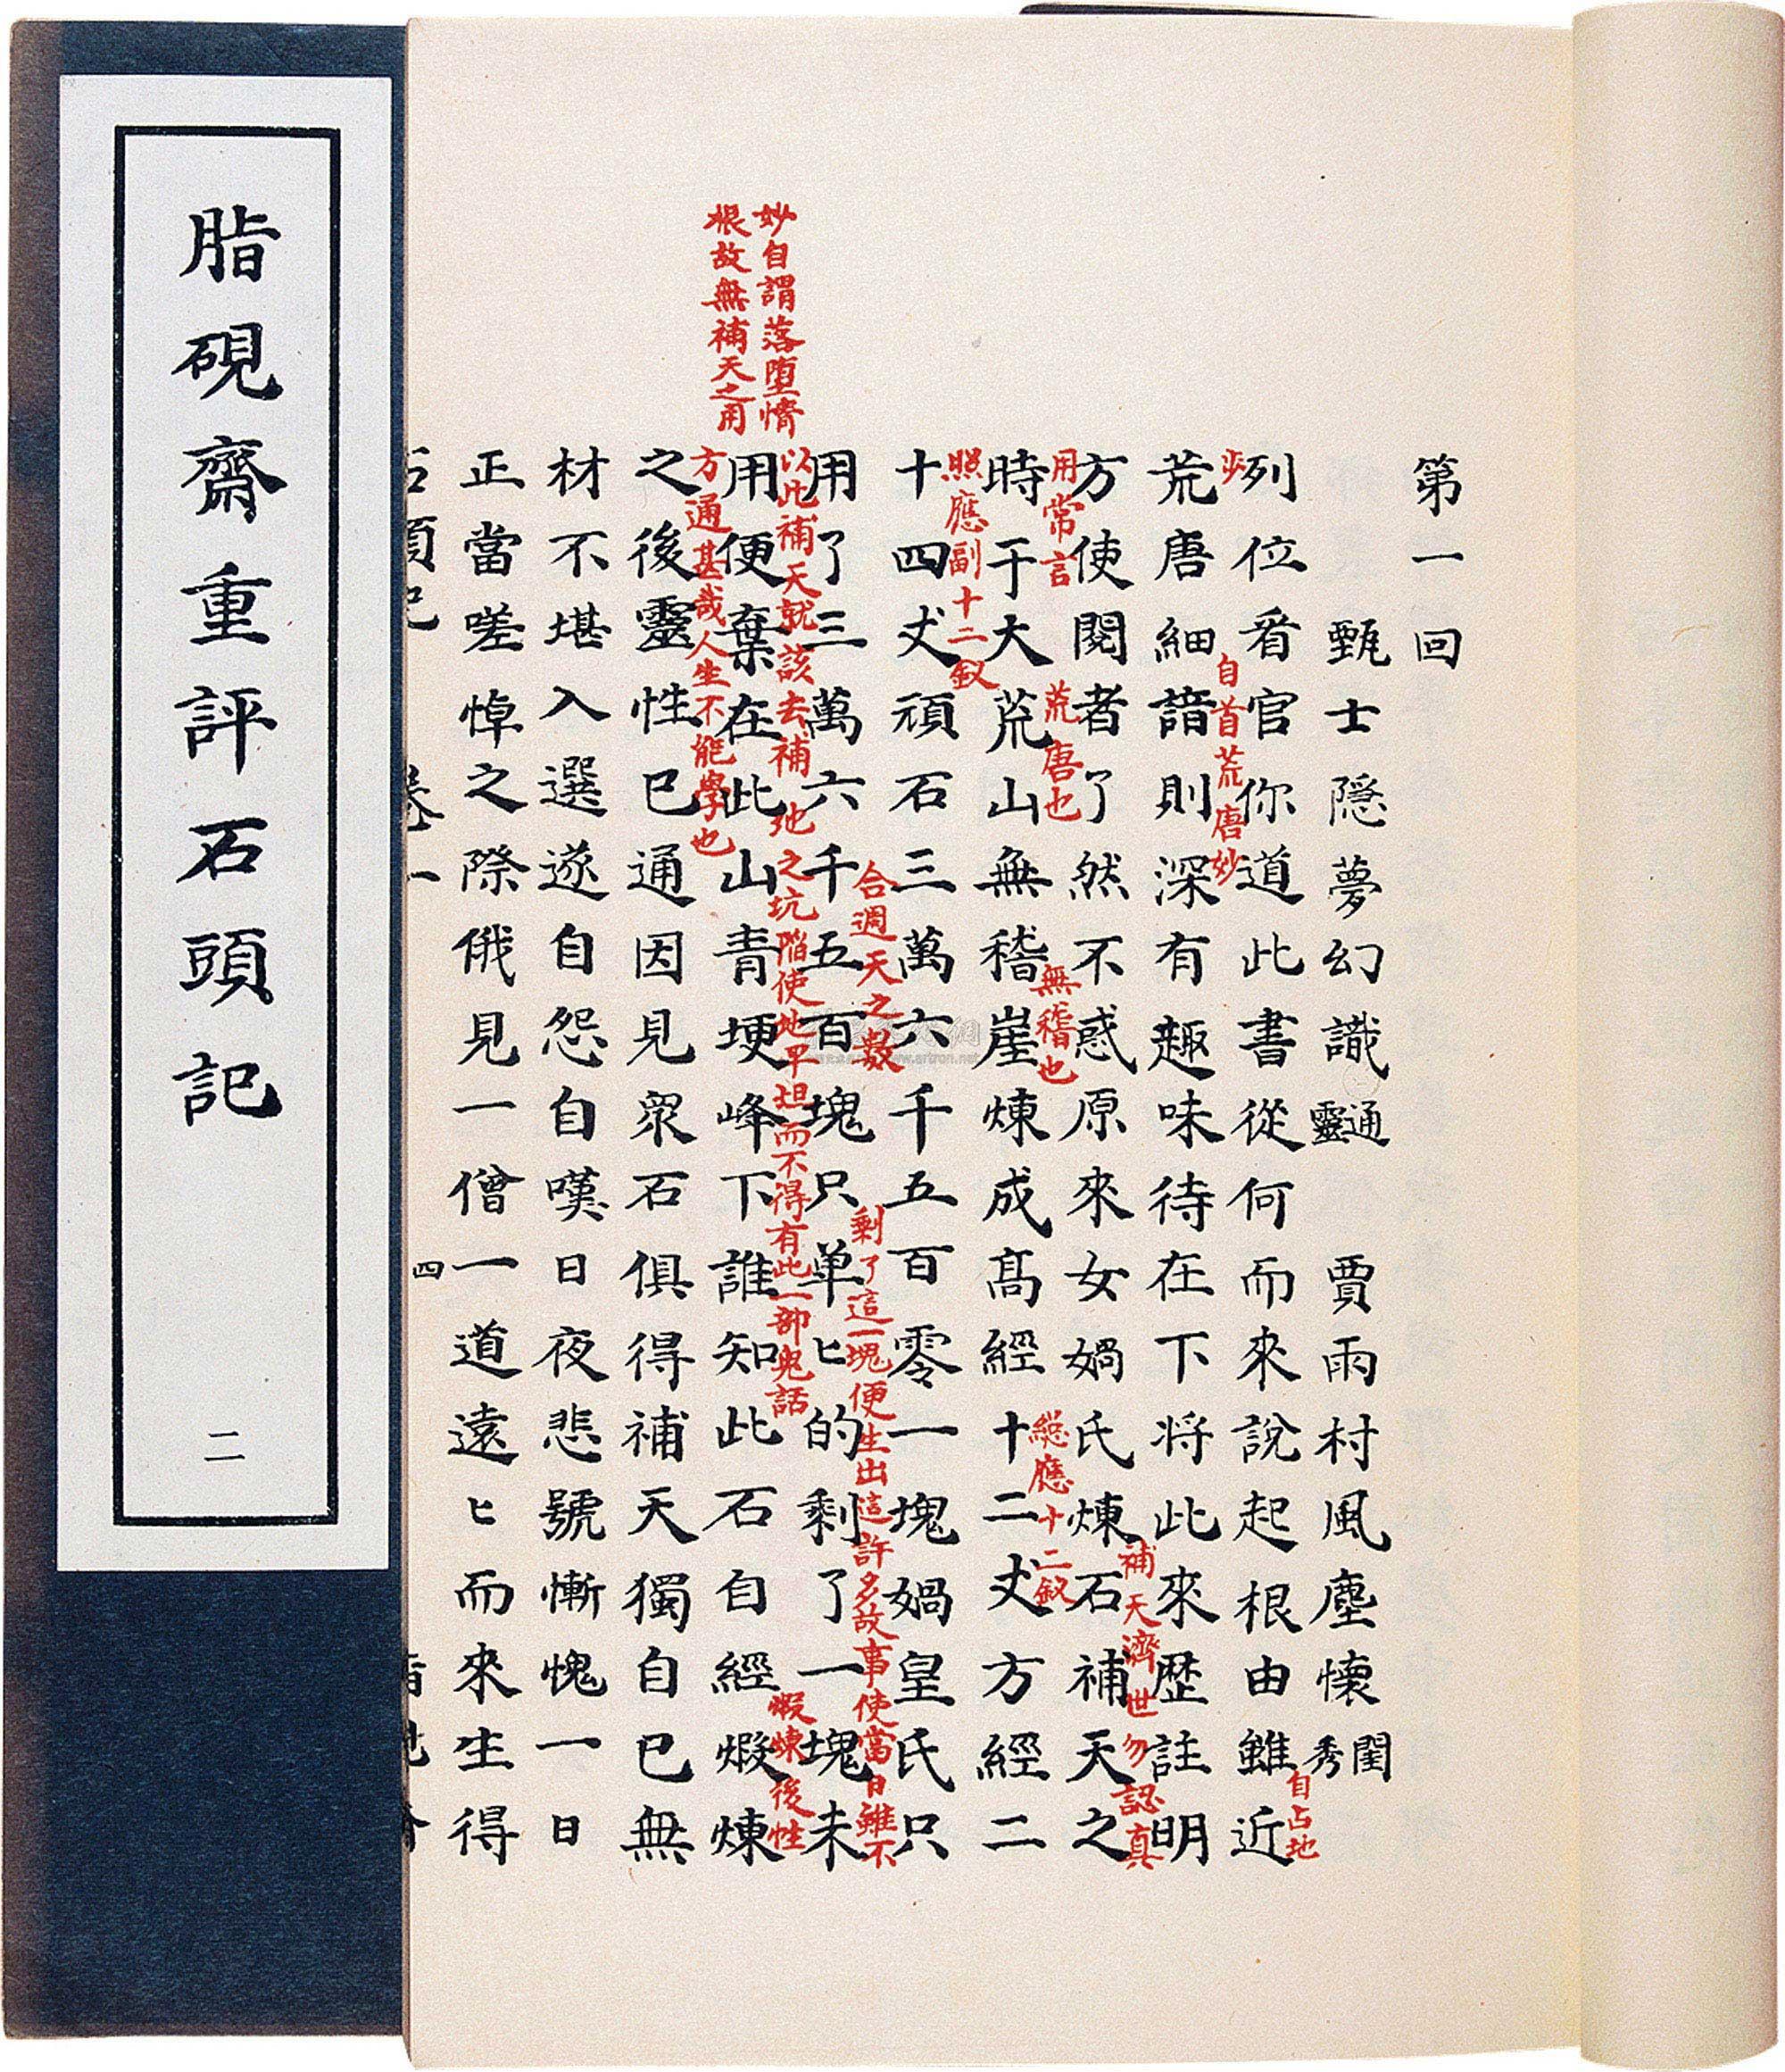 脂硯齋重評石頭記
二
第一回
甄士隱夢幻識通靈　賈雨村風塵懷閨秀
列位看官你道此書從何而來說起根由雖近
自占地
步自首荒唐妙
荒唐細諳則深有趣味待在下将此來歷註明
方使閱者了然不惑原來女媧氏煉石補天之
補天濟世勿認真
用常言
時于大荒山無稽崖煉成髙經十二丈方經二
荒唐也
無稽也
緫應十二釵
十四丈頑石三萬六千五百零一塊媧皇氏只
照應副十二釵
用了三萬六千五百塊只单匕的剩了一塊未
合週天之數
剩了這一塊便生出這許多故事使當日雖不
以此補天就該去補地之坑陷使地平坦而不得有此一部鬼話
用便棄在此山青埂峰下誰知此石自經煅煉
妙自謂落堕情
根故無補天之用
煅煉後性
方通甚哉人生不能學也
之後靈性已通因見衆石俱得補天獨自已無
材不堪入選遂自怨自嘆日夜悲號慚愧一日
正當嗟悼之際俄見一僧一道遠匕而來生得
石頭記　卷一　四　脂硯齋